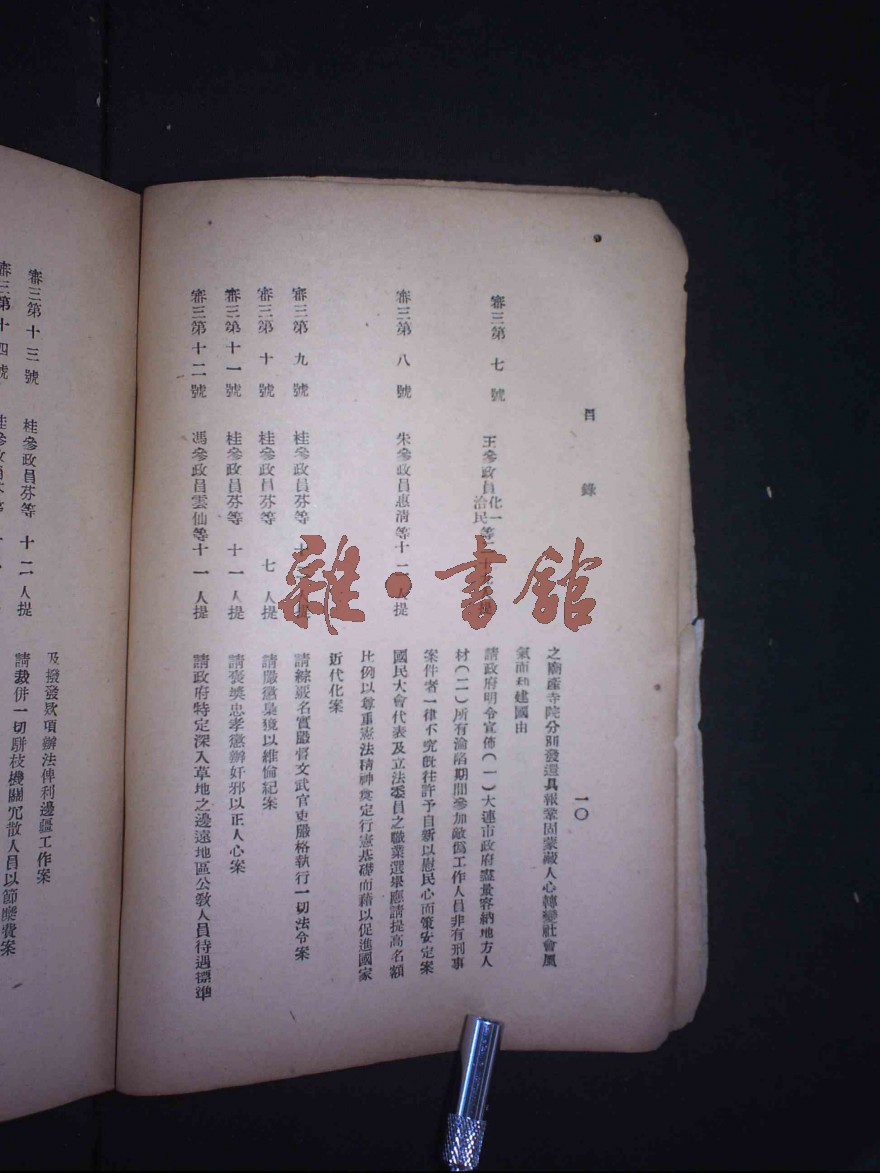 目錄
一〇
之廟產寺院分別發還具報鞏固蒙藏人心轉變社會風
氣而利建國由
審三第七號 王參政員化一洽民等
請政府明令宣佈(一)大連市政府盡量容納地方人
材(二)所有淪陷期間參加敵偽工作人員非有刑事
案件者一律不究旣往許予自新以慰民心而策安定案
審三第八號 朱參政員惠清等十一人提
國民大會代表及立法委員之職業選舉應請提高名額
比例以尊重憲法精神奠定行憲基礎而藉以促進國家
近代化案
審三第九號 桂參政員芬等十人提
請綜覈名實嚴督文武官吏嚴格執行一切法令案
審三第十號 桂參政員芬等七人提
請嚴懲梟獍以維倫紀案
審三第十一號 桂參政員芬等十一人提
請褒獎忠孝懲辦奸邪以正人心案
審三第十二號 馮參政員雲仙等十一人提
請政府特定深入草地之邊遠地區公教人員待遇標準
及撥發欵項辦法俾利邊疆工作案
審三第十三號 桂參政員芬等十二人提
請裁併一切駢枝機關冗散人員以節糜費案
審三第十四號
雜·書館